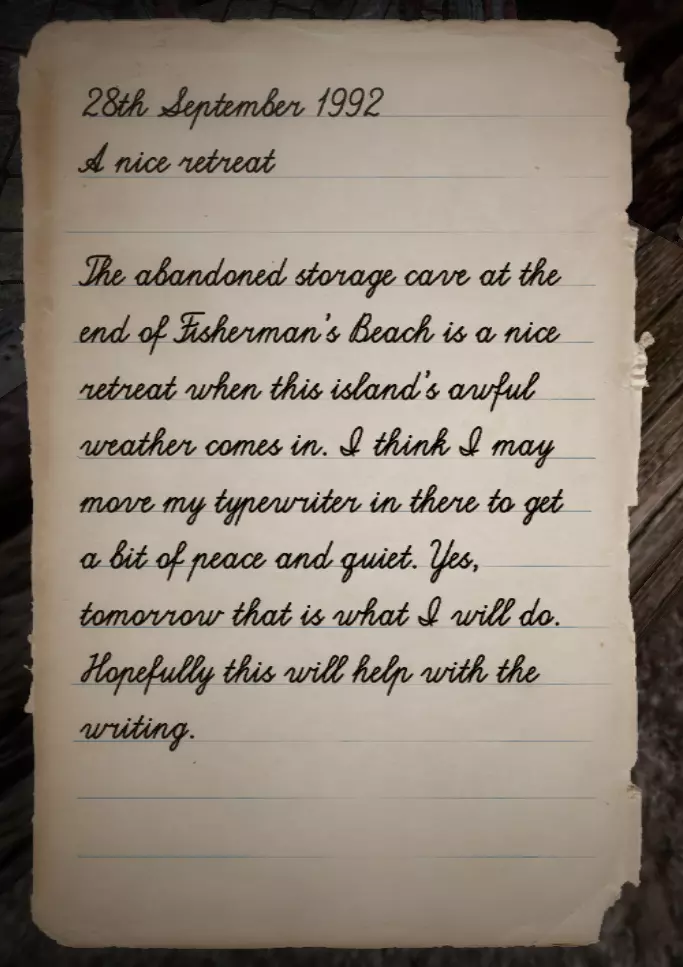 28th September 1992
A nice retreat
The abandoned storage cave at the
end of Fisherman's Beach is a nice
retreat when this island's awful
weather comes in. I think I may
move my typewriter in there to get
a bit of peace and quiet. Yes,
tomorrow that is what I will do.
Hopefully this will help with the
writing.